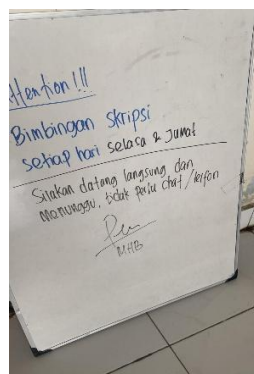 Attention!!!
Bimbingan Skripsi
setiap hari selasa & Jumat
Silakan datang langsung dan
menunggu, tidak perlu chat/telfon
MHB